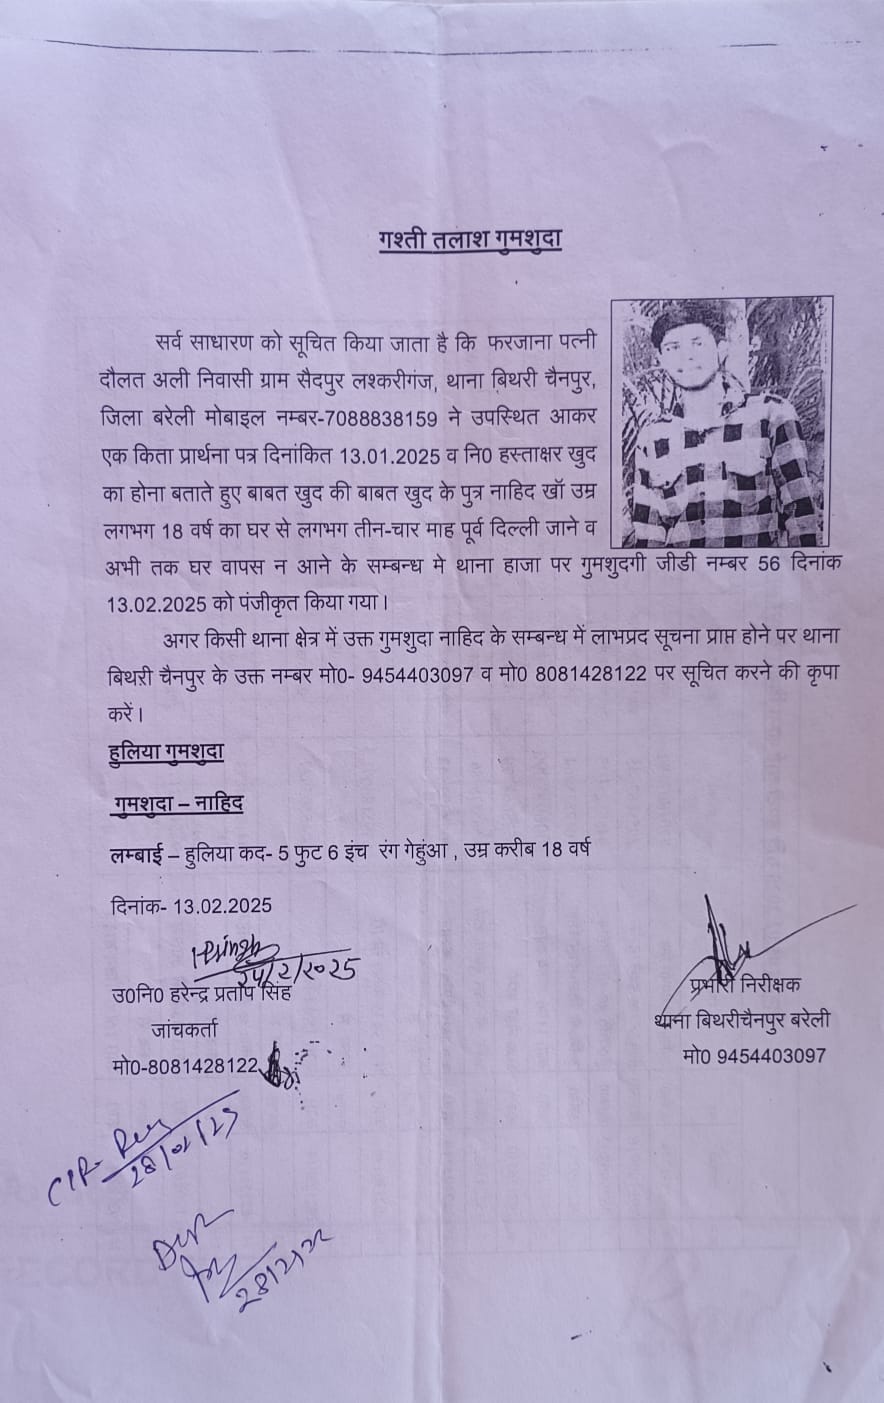 गश्ती तलाश गुमशुदा
सर्व साधारण को सूचित किया जाता है कि फरजाना पत्नी
दौलत अली निवासी ग्राम सैदपुर लश्करीगंज, थाना बिथरी चैनपुर,
जिला बरेली मोबाइल नम्बर-7088838159 ने उपस्थित आकर
एक किता प्रार्थना पत्र दिनांकित 13.01.2025 व नि0 हस्ताक्षर खुद
का होना बताते हुए बाबत खुद की बाबत खुद के पुत्र नाहिद खॉ उम्र
लगभग 18 वर्ष का घर से लगभग तीन-चार माह पूर्व दिल्ली जाने व
अभी तक घर वापस न आने के सम्बन्ध मे थाना हाजा पर गुमशुदगी जीडी नम्बर 56 दिनांक
13.02.2025 को पंजीकृत किया गया।
अगर किसी थाना क्षेत्र में उक्त गुमशुदा नाहिद के सम्बन्ध में लाभप्रद सूचना प्राप्त होने पर थाना
बिथरी चैनपुर के उक्त नम्बर मो0- 9454403097 व मो0 8081428122 पर सूचित करने की कृपा
करें।
हुलिया गुमशुदा
गुमशुदा – नाहिद
लम्बाई – हुलिया कद- 5 फुट 6 इंच रंग गेहुंआ , उम्र करीब 18 वर्ष
दिनांक- 13.02.2025
HPSingh
24/2/2025
उ0नि0 हरेन्द्र प्रताप सिंह
जांचकर्ता
मो0-8081428122
प्रभारी निरीक्षक
थाना बिथरीचैनपुर बरेली
मो0 9454403097